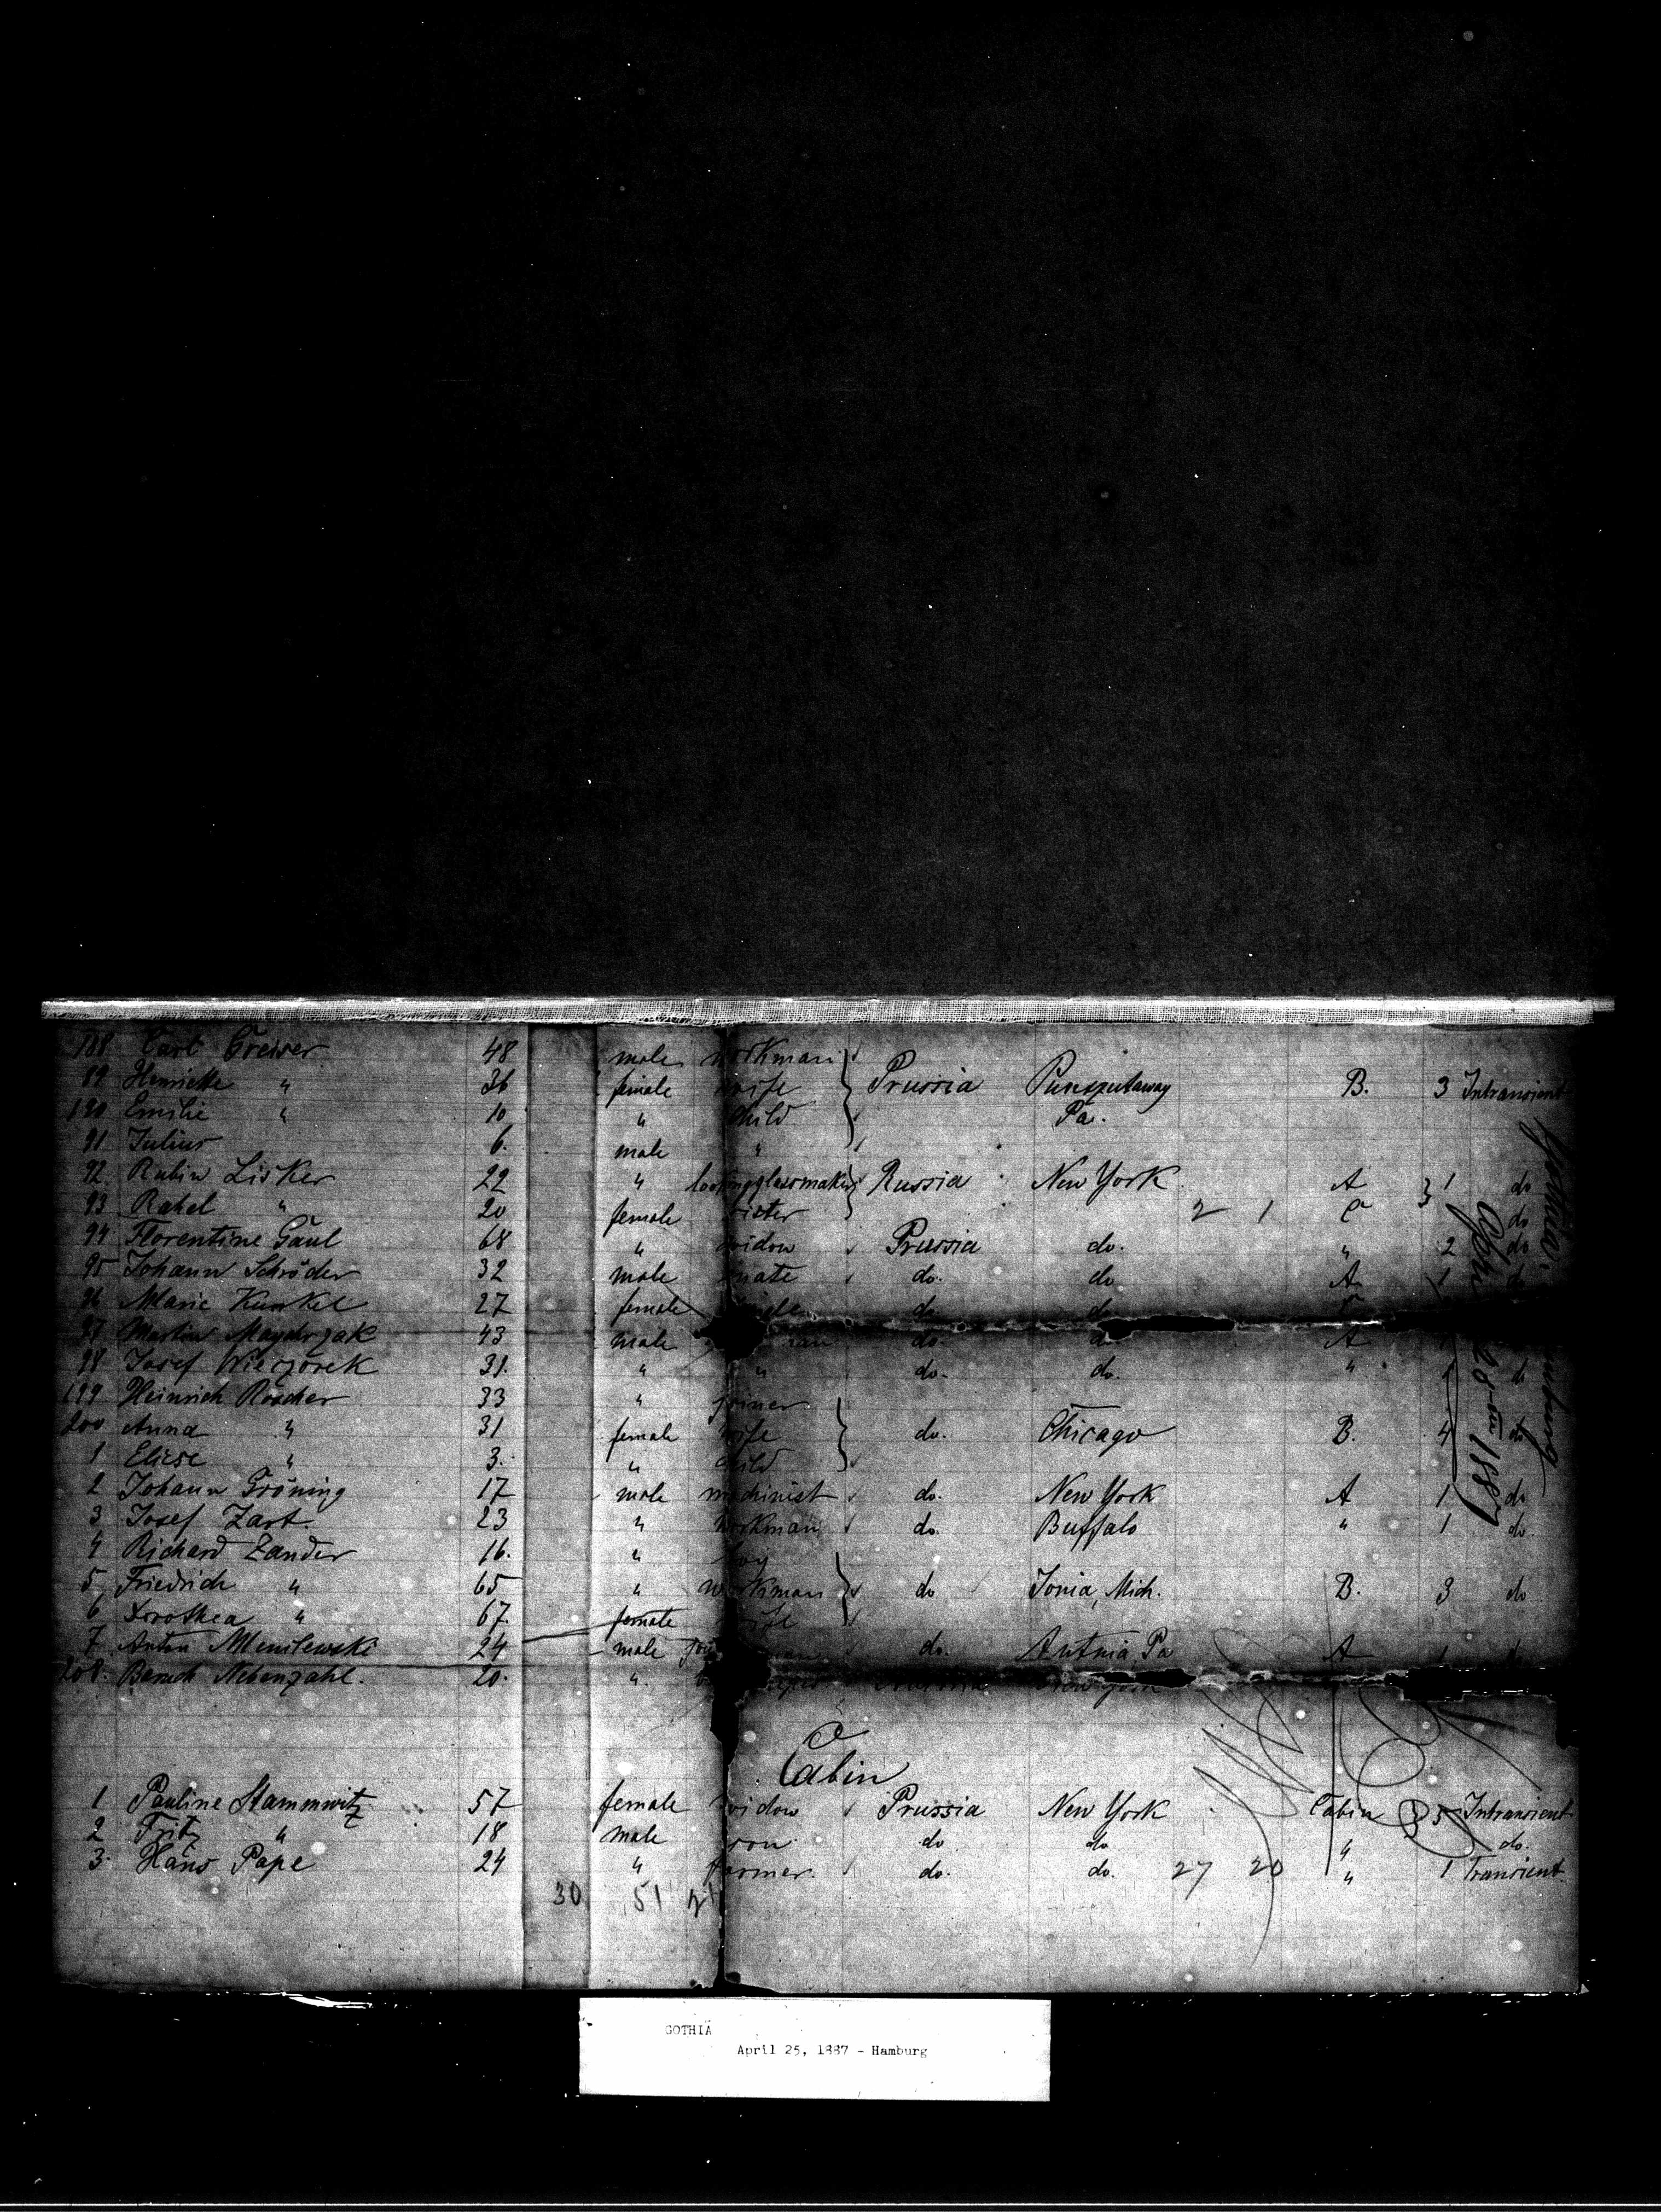 188 Carl Greiser 48 male workman
89 Henriette " 36 female wife Prussia Punxutaway B. 3 Intransient
190 Emilie " 10 " child Pa.
91 Julius 6. male "
92 Rubin Lisker 22 " lookingglassmaker Russia New York A 1 do
93 Rahel " 20 female sister 2 1 C do
94 Florentine Gaul 68 " widow Prussia do. " 2 do
95 Johann Schröder 32 male mate do. do A 1 do
96 Marie Kunkel 27 female single do. do. C
97 Martin Maydrzak 43 male do. do A
98 Josef Wieczorek 31. " " do. do. " 1 do
199 Heinrich Röscher 33 " joiner
200 Anna " 31 female wife do. Chicago B. 4 do
1 Eliese " 3. " child
2 Johann Gröning 17 male machinist do. New York A 1 do
3 Josef Zart. 23 " workman do. Buffalo " 1 do.
4 Richard Zander 16. " boy
5 Friedrich " 65 " workman do Jonia, Mich. B. 3 do
6 Dorothea " 67. female wife
7 Anton Menilewski 24 male do. Antnia Pa A 1 do
208. Baruch Nebenzahl. 20. " New York
Cabin
1 Pauline Stammwitz 57 female widow Prussia New York Cabin 3 Intransient
2 Fritz " 18 male son do do " do.
3. Hans Pape 24 " farmer. do. do. 27 20 " 1 Transient.
30 51
Gothia
April 25th 1887
GOTHIA
April 25, 1887 - Hamburg